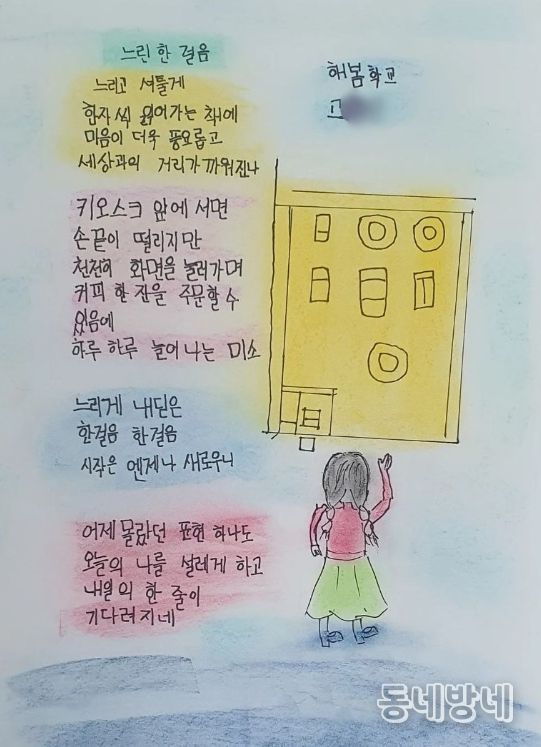 느린 한 걸음
해봄학교
고
느리고 서툴게
한자씩 읽어가는 책에
마음이 더욱 풍요롭고
세상과의 거리가 까워진나
키오스크 앞에 서면
손끝이 떨리지만
천천히 화면을 눌러가며
커피 한 잔을 주문할 수
있음에
하루 하루 늘어 나는 미소
느리게 내딛은
한걸음 한걸음
시작은 엔제나 새로우니
어제 몰랐던 표현 하나도
오늘의 나를 설레게 하고
내일의 한 줄이
기다려지네
동네방네